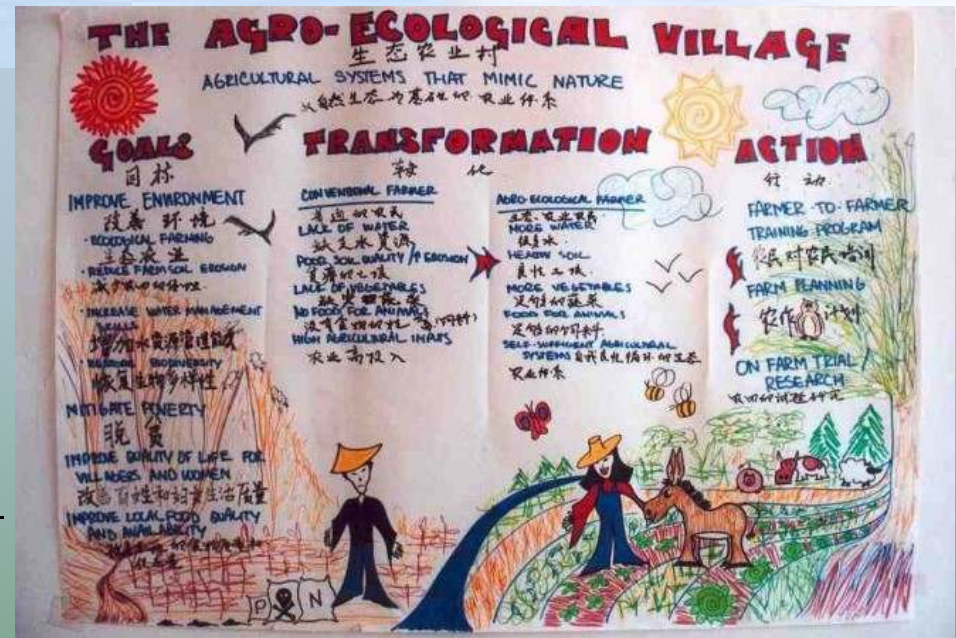 THE AGRO-ECOLOGICAL VILLAGE
生态农业村
AGRICULTURAL SYSTEMS THAT MIMIC NATURE
以自然生态为基础的农业体系
GOALS
目标
IMPROVE ENVIRONMENT
改善环境
• ECOLOGICAL FARMING
生态农业
• REDUCE FARM SOIL EROSION
减少
• INCREASE WATER MANAGEMENT
SKILLS
增加水资源管理
BIODIVERSITY
恢复生物多样性
MITIGATE POVERTY
脱贫
IMPROVE QUALITY OF LIFE FOR
VILLAGERS AND WOMEN
改善百姓和妇女生活质量
IMPROVE LOCAL FOOD QUALITY
AND AVAILABILITY
TRANSFORMATION
转化
CONVENTIONAL FARMER
普通的农民
LACK OF WATER
缺乏水资源
POOR SOIL QUALITY / ↑ EROSION
LACK OF VEGETABLES
缺乏蔬菜
NO FOOD FOR ANIMALS
没有食物(饲料)
HIGH AGRICULTURAL INPUTS
农业高投入
AGRO-ECOLOGICAL FARMER
生态农业农民
MORE WATER
很多水
HEALTHY SOIL
良性土壤
MORE VEGETABLES
足够的蔬菜
FOOD FOR ANIMALS
足够的饲料
SELF-SUFFICIENT AGRICULTURAL
SYSTEMS 自我良性循环的生态
农业体系
ACTION
行动
FARMER-TO-FARMER
TRAINING PROGRAM
农民对农民培训
FARM PLANNING
农作计划
ON FARM TRIAL/
RESEARCH
农田的试验研究
P N